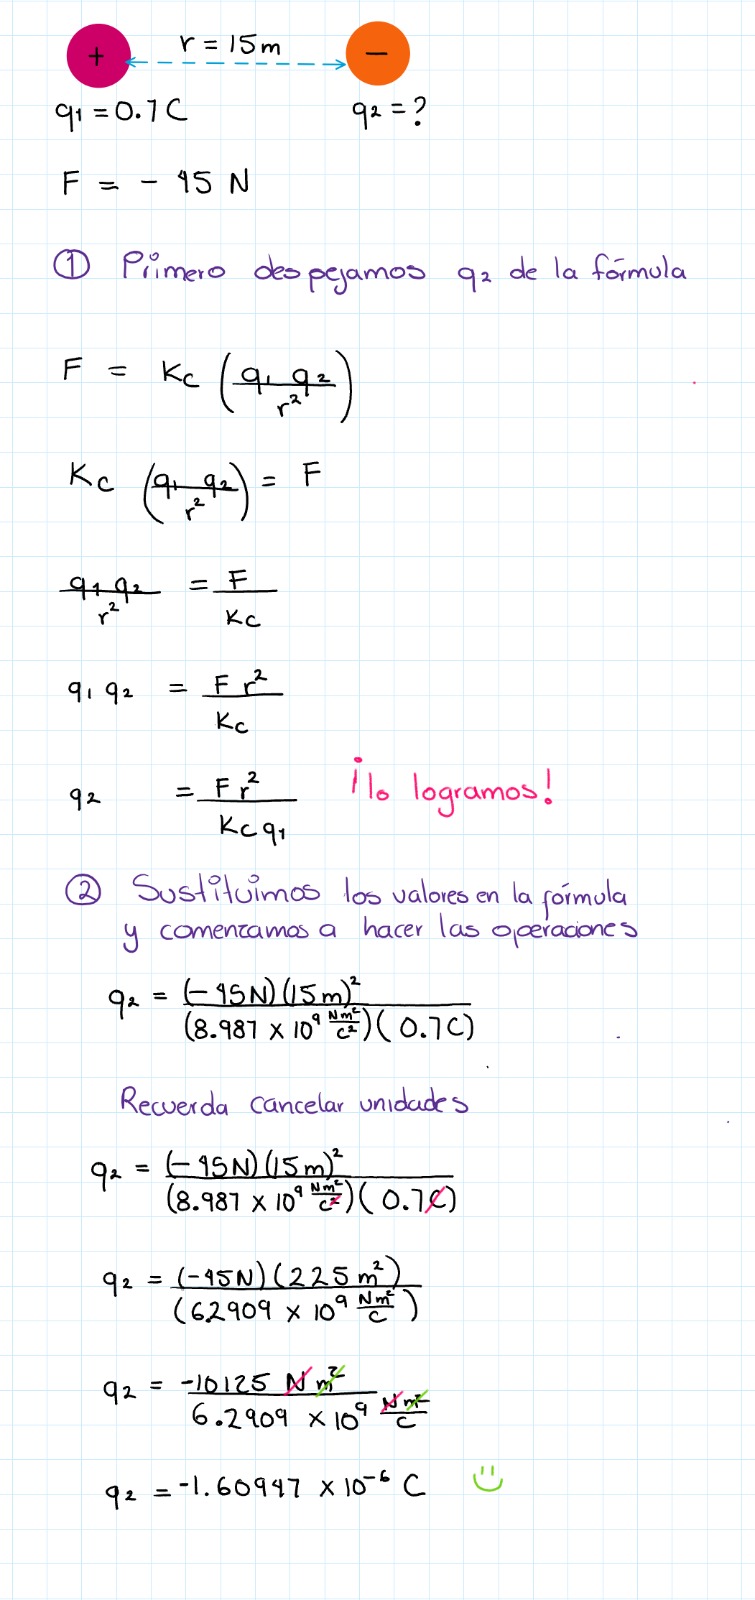 + r = 15m −
q₁ = 0.7 C q₂ = ?
F = - 45 N
① Primero despejamos q₂ de la fórmula
F = Kc (q₁ q₂ / r²)
Kc (q₁ q₂ / r²) = F
q₁ q₂ / r² = F / Kc
q₁ q₂ = F r² / Kc
q₂ = F r² / Kc q₁ ¡lo logramos!
② Sustituimos los valores en la fórmula
y comenzamos a hacer las operaciones
q₂ = (-45N)(15m)² / (8.987 x 10⁹ Nm²/C²)(0.7C)
Recuerda cancelar unidades
q₂ = (-45N)(15m)² / (8.987 x 10⁹ Nm²/C²)(0.7C)
q₂ = (-45N)(225m²) / (62909 x 10⁹ Nm²/C)
q₂ = -10125 N m² / 6.2909 x 10⁹ Nm²/C
q₂ = -1.60947 x 10⁻⁶ C